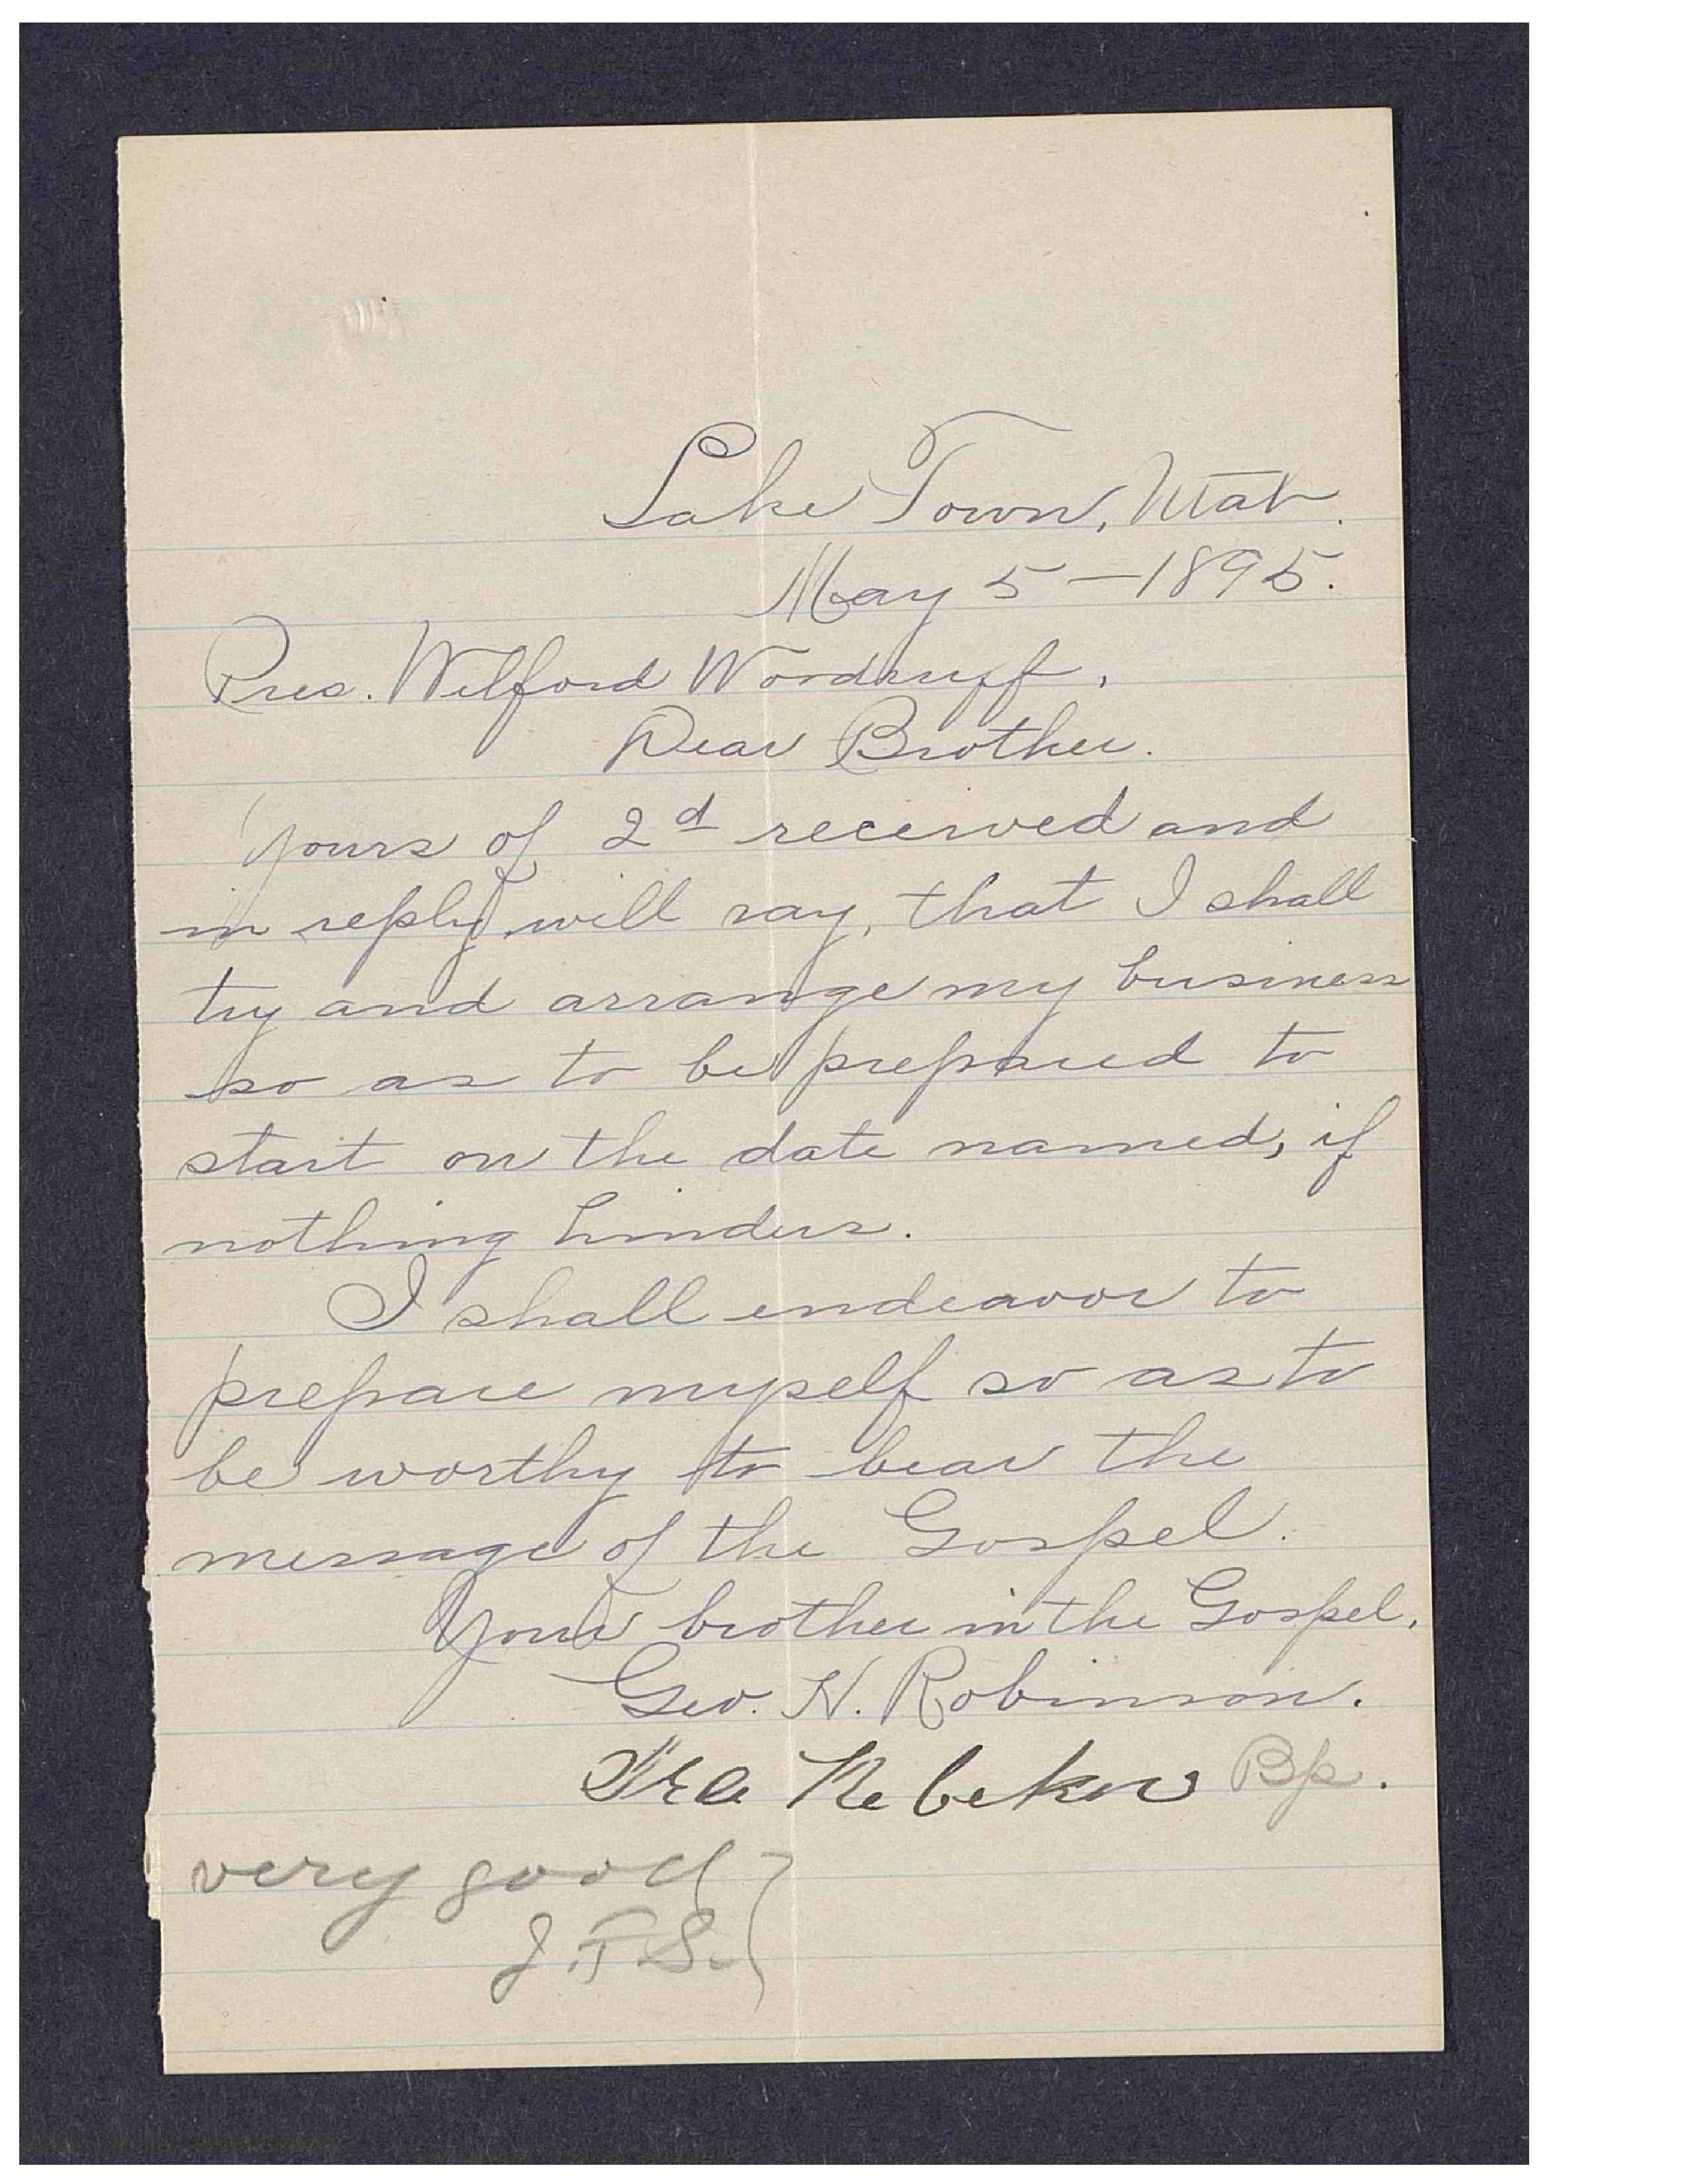 Lake Town, Utah.
May 5 — 1895.
Pres. Wilford Woodruff,
Dear Brother.
Yours of 2d received and
in reply will say, that I shall
try and arrange my business
so as to be prepared to
start on the date named, if
nothing hinders.
I shall endeavor to
prepare myself so as to
be worthy to bear the
message of the Gospel.
Your brother in the Gospel,
Geo. H. Robinson.
Ira Nebeker Bp.
very good
J.F.S.